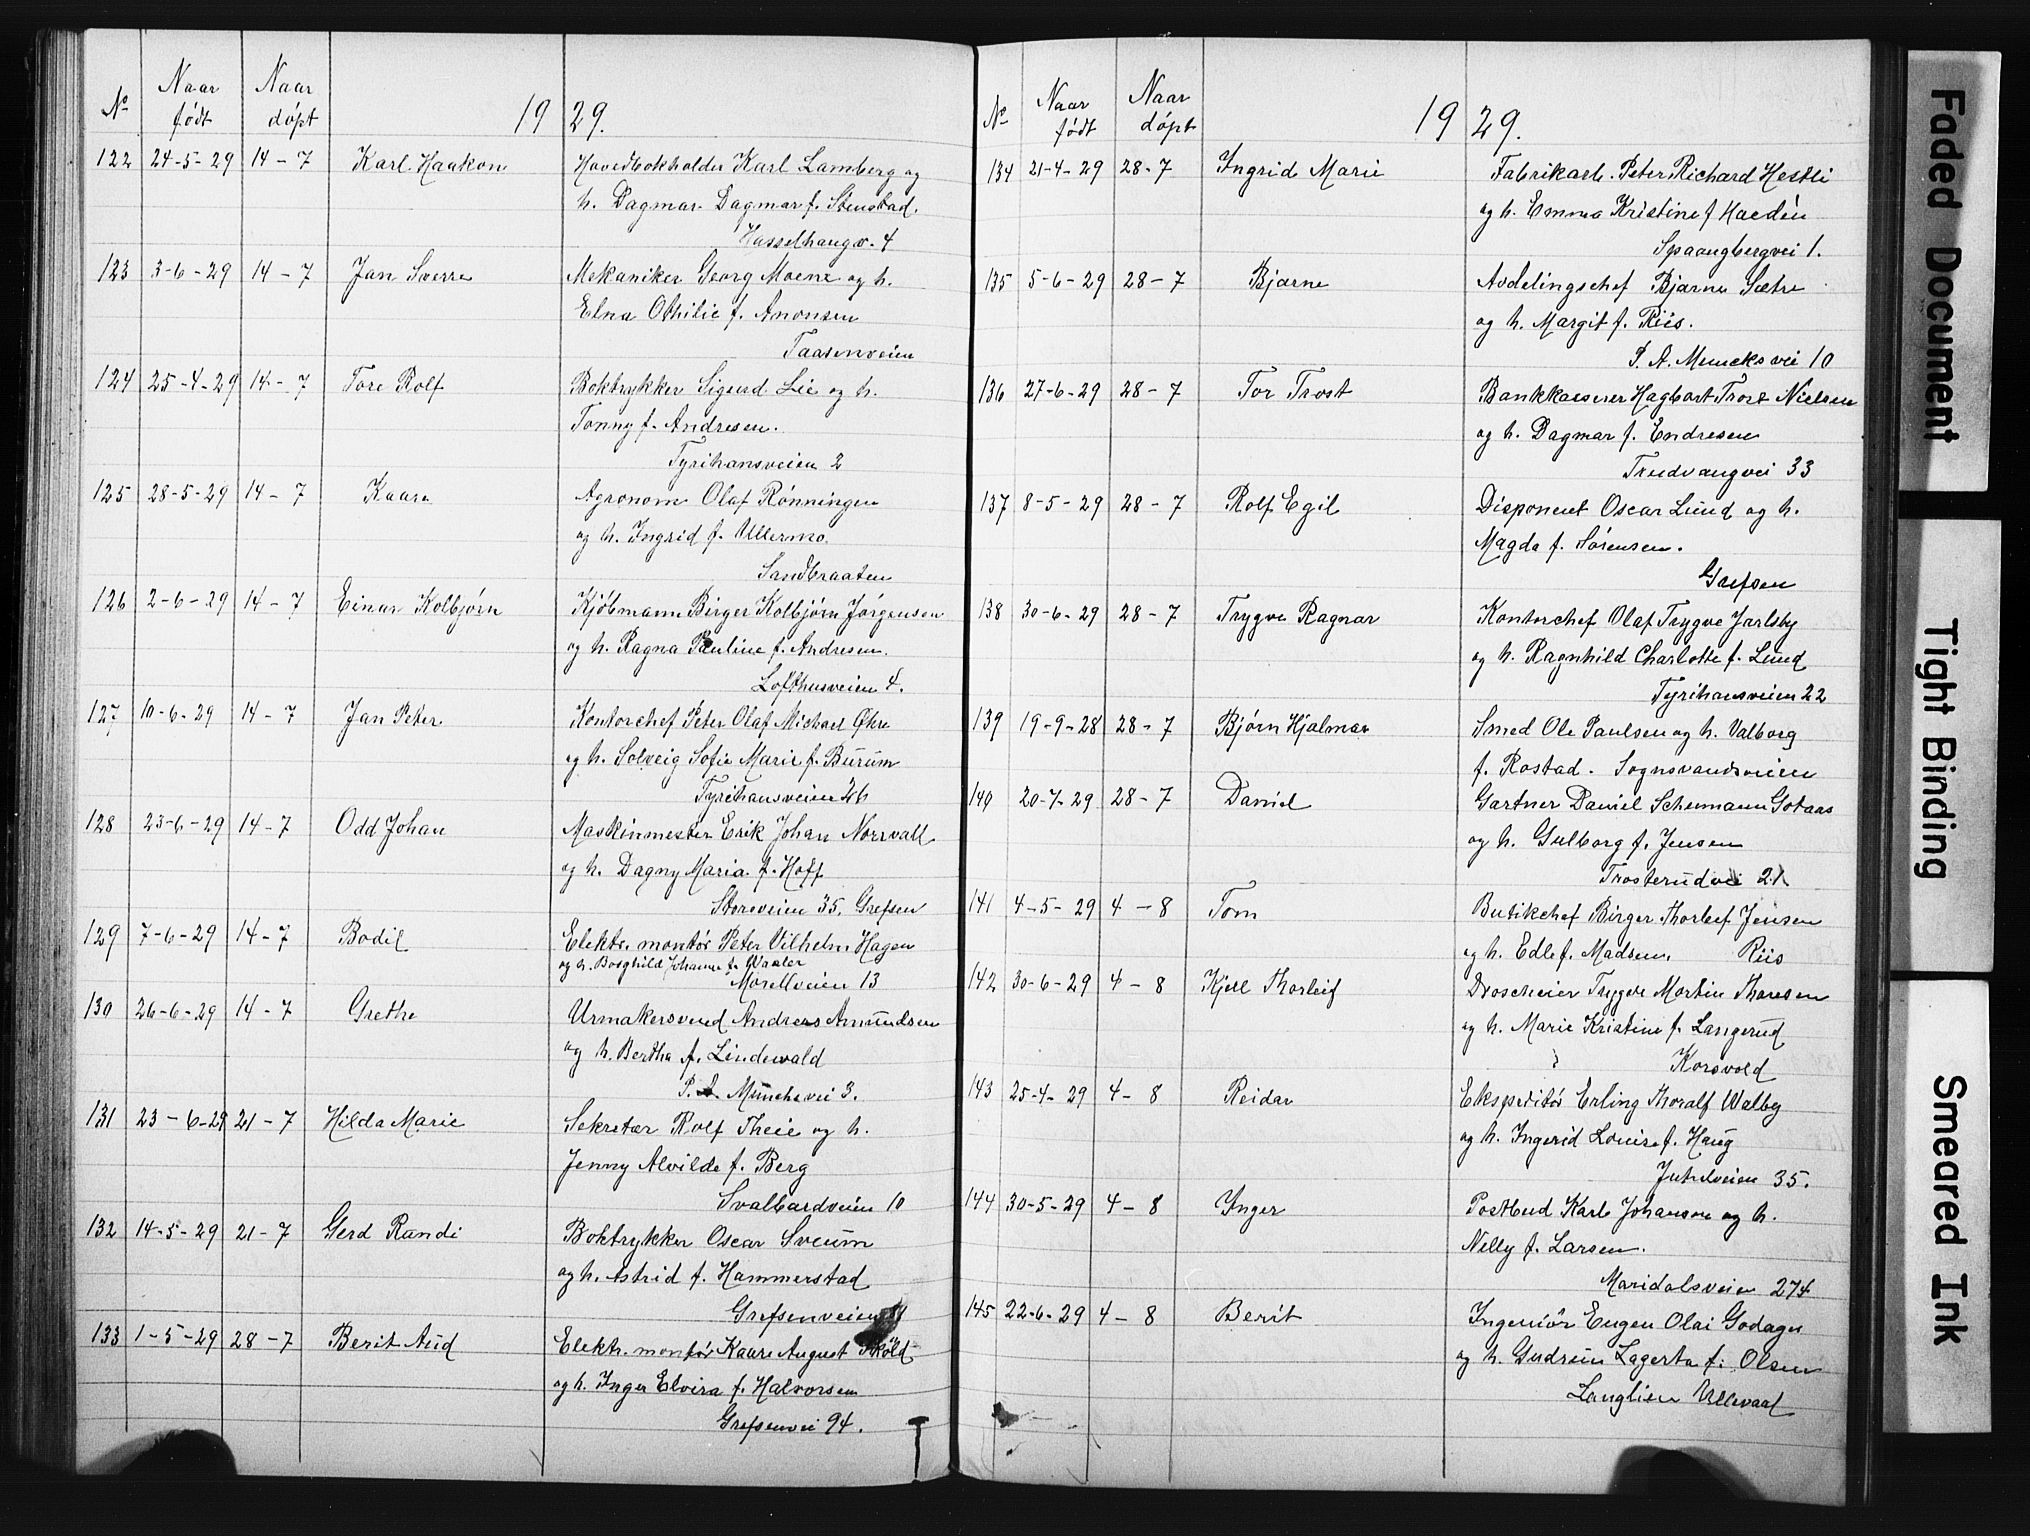 No Naar født Naar døpt 19 29.
122 24-5-29 14-7 Karl Haakon Hovedbokholder Karl Lamberg og
h. Dagmar Dagmar f. Stenstad.
Hasselhaugv. 4
123 3-6-29 14-7 Jan Sverre Mekaniker Georg Moene og h.
Elna Othilie f. Anonsen
Taasenveien
124 25-4-29 14-7 Tore Rolf Boktrykker Sigurd Lie og h.
Tonny f. Andresen.
Tyrihansveien 2
125 28-5-29 14-7 Kaare Agronom Olaf Rønningen
og h. Ingrid f. Ullermo.
Sandbraaten
126 2-6-29 14-7 Einar Kolbjørn Kjøbmann Birger Kolbjørn Jørgensen
og h. Ragna Pauline f. Andresen.
Lofthusveien 4.
127 10-6-29 14-7 Jan Peter Kontorchef Peter Olaf Michael Øhre
og h. Solveig Sofie Marie f. Burum
Tyrihansveien
128 23-6-29 14-7 Odd Johan Maskinmester Erik Johan Norrvall
og h. Dagny Maria f. Hoff
Storoveien 35, Grefsen
129 7-6-29 14-7 Bodil Elektr. montør Peter Vilhelm Hagen
og h. Borghild Johanne f. Waaler
Morellveien 13
130 26-6-29 14-7 Grethe Urmakersvend Andreas Amundsen
og h. Bertha f. Lindewald
P. A. Munchsvei 3.
131 23-6-29 21-7 Hilda Marie Sekretær Rolf Theie og h.
Jenny Alvilde f. Berg
Svalbardveien 10
132 14-5-29 21-7 Gerd Randi Boktrykker Oscar Sveum
og h. Astrid f. Hammerstad
Grefsenveien
133 1-5-29 28-7 Berit Aud Elektr. montør Kaare August Skøld
og h. Inger Elvira f. Halvorsen
Grefsenvei 94.
No Naar født Naar døpt 19 29.
134 21-4-29 28-7 Ingrid Marie Fabrikarb. Peter Richard Hestli
og h. Emma Kristine f. Haedén
Spaangbergvei 1.
135 5-6-29 28-7 Bjarne Avdelingschef Bjarne Sætre
og h. Margit f. Riis.
P. A. Munchsvei 10
136 27-6-29 28-7 Tor Trost Bankkasserer Hagbart Trost Nielsen
og h. Dagmar f. Endresen
Trudvangvei 33
137 8-5-29 28-7 Rolf Egil Disponent Oscar Lund og h.
Magda f. Sørensen.
Grefsen
138 30-6-29 28-7 Trygve Ragnar Kontorchef Olaf Trygve Jarlsby
og h. Ragnhild Charlotte f. Lund
Tyrihansveien 22
139 19-9-28 28-7 Bjørn Hjalmar Smed Ole Paulsen og h. Valborg
f. Rostad. Sognsvandsveien
140 20-7-29 28-7 Daniel Gartner Daniel Schumann Gotaas
og h. Gulborg f. Jensen
Trosterudvei 21
141 4-5-29 4-8 Tom Butikchef Birger Thorleif Jensen
og h. Edle f. Madsen. Riis
142 30-6-29 4-8 Kjell Thorleif Droscheier Trygve Martin Thoresen
og h. Marie Kristine f. Langerud
Korsvold
143 25-4-29 4-8 Reidar Ekspeditør Erling Thoralf Walby
og h. Ingerid Louise f. Haug
Juhlveien 35.
144 30-5-29 4-8 Inger Postbud Karl Johansen og h.
Nelly f. Larsen.
Maridalsveien 274
145 22-6-29 4-8 Berit Ingeniør Eugen Olai Godager
og h. Gudrun Lagerta f. Olsen
Langlien Ullevaal
Faded Document
Tight Binding
Smeared Ink